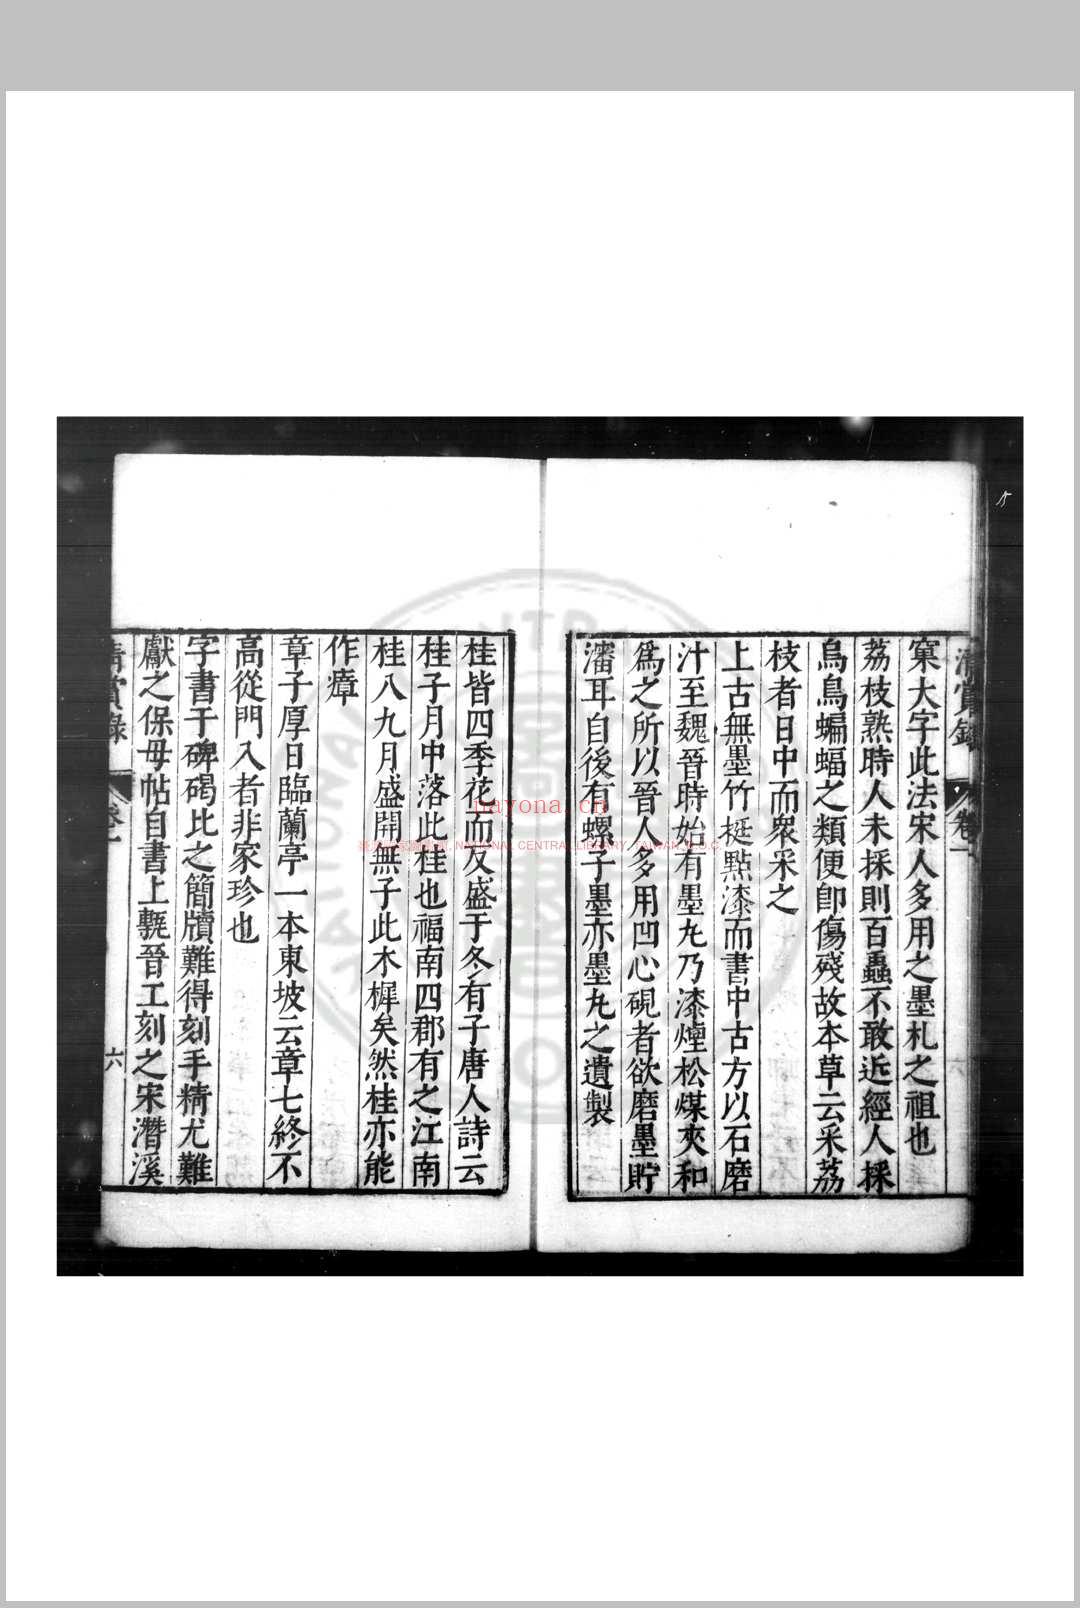 清賞錄 卷一
窠大字此法宋人多用之墨札之祖也
荔枝熟時人未採則百蟲不敢近經人採
烏鳥蝙蝠之類便即傷殘故本草云采荔
枝者日中而眾采之
上古無墨竹挺點漆而書中古方以石磨
汁至魏晉時始有墨丸乃漆煙松煤夾和
爲之所以晉人多用凹心硯者欲磨墨貯
瀋耳自後有螺子墨亦墨丸之遺製
桂皆四季花而反盛于冬有子唐人詩云
桂子月中落此桂也福南四郡有之江南
桂八九月盛開無子此木樨矣然桂亦能
作瘴
章子厚日臨蘭亭一本東坡云章七終不
高從門入者非家珍也
字書于碑碣比之簡牘難得刻手精尤難
獻之保母帖自書上甎晉工刻之宋潛溪
清賞錄 卷一 六
nayona.cn
NATIONAL CENTRAL LIBRARY, TAIWAN, R.O.C.